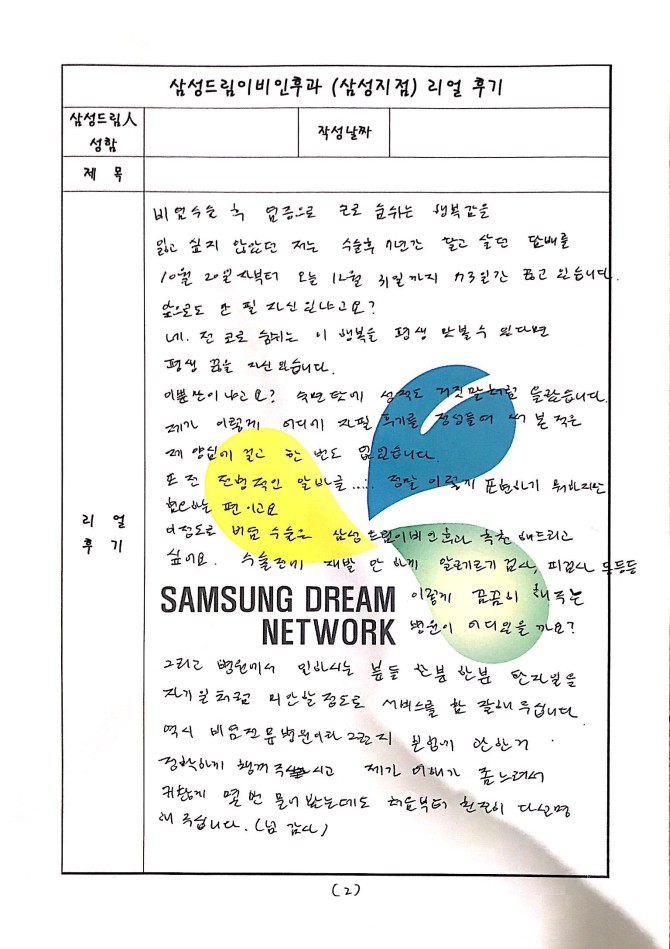 삼성드림이비인후과 (삼성지점) 리얼 후기
삼성드림人
성함
작성날짜
제 목
리 얼
후 기
비염수술 후 염증으로 코로 숨쉬는 행복감을
잃고 싶지 않았던 저는 수술후 7년간 달고 살던 담배를
10월 20일자부터 오늘 12월 31일까지 73일간 끊고 있습니다.
앞으로도 안 필 자신 있냐고요?
네. 전 코로 숨쉬는 이 행복을 평생 맛볼수 있다면
평생 끊을 자신 있습니다.
이뿐만이냐고요? 숙면탓에 성적도 거짓말처럼 올랐습니다.
제가 이렇게 어디에 자필 후기를 정성들여 써 본 적은
제 양심에 걸고 한 번도 없었습니다.
또 전 전형적인 알바글..... 정말 이렇게 표현하기 뭐하지만
혐오하는 편이고요
이정도로 비염 수술은 삼성드림이비인후과 추천 해드리고
싶어요. 수술전에 재발 안 하게 알레르기 검사, 피검사 등등등
이렇게 꼼꼼히 해주는
병원이 어디있을까요?
SAMSUNG DREAM
NETWORK
그리고 병원에서 일하시는 분들 한분 한분 환자일을
자기일처럼 미안할정도로 서비스를 참 잘해 주십니다
역시 비염전문병원이라 그런지 분업이 안한거
정확하게 챙겨주시고 제가 이해가 좀 느려서
귀찮게 몇 번 물어 봤는데도 처음부터 천천히 다 설명
해 주십니다. (넘 감사)
(2)